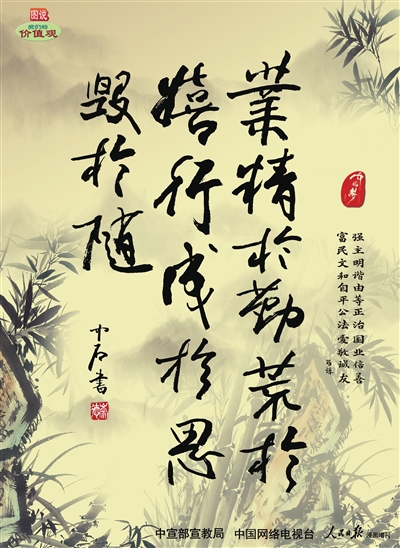 图说
我们的
价值观
業精於勤荒於
嬉行成於思
毁於随
中石書
中国梦
富强
民主
文明
和谐
自由
平等
公正
法治
爱国
敬业
诚信
友善
中宣部宣教局 中国网络电视台 人民日报 漫画增刊